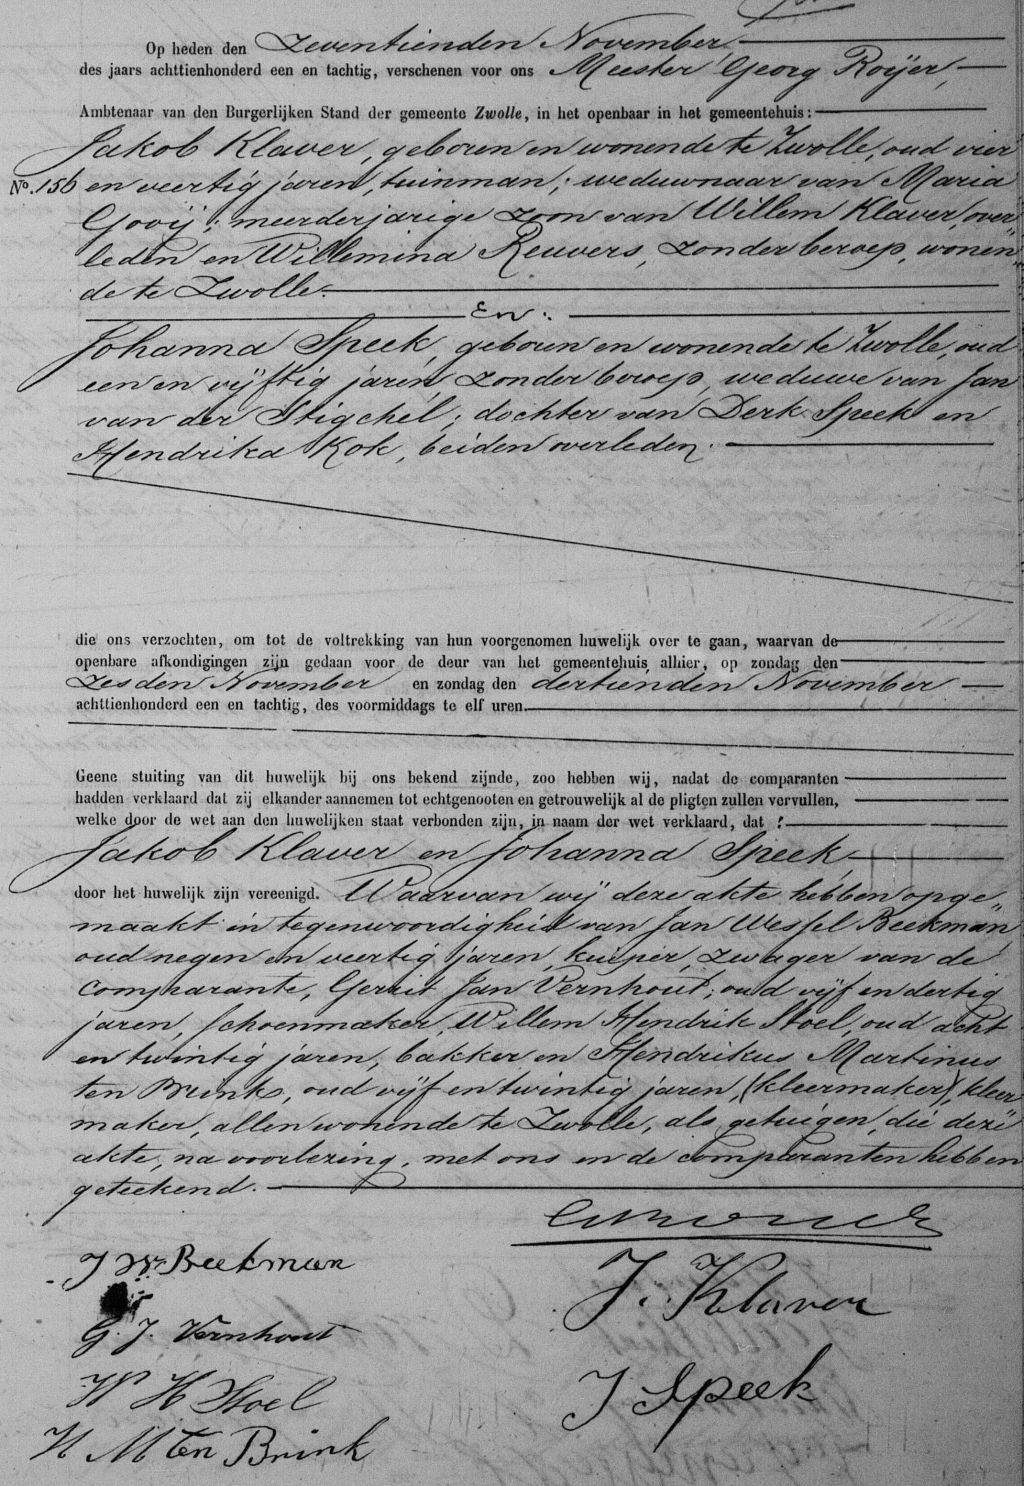 Op heden den Zeventienden November,
des jaars achttienhonderd een en tachtig, verschenen voor ons Meester Georg Roijer,
Ambtenaar van den Burgerlijken Stand der gemeente Zwolle, in het openbaar in het gemeentehuis:
Jakob Klaver, geboren en wonende te Zwolle, oud vier
No. 156 en veertig jaren, tuinman; weduwnaar van Maria
Gooij; meerderjarige zoon van Willem Klaver, over„
leden en Willemina Reuvers, zonder beroep, wonen„
de te Zwolle.
En:
Johanna Speek, geboren en wonende te Zwolle, oud
een en vijftig jaren, zonder beroep, weduwe van Jan
van der Stigchel; dochter van Derk Speek en
Hendrika Kok, beiden overleden.
die ons verzochten, om tot de voltrekking van hun voorgenomen huwelijk over te gaan, waarvan de
openbare afkondigingen zijn gedaan voor de deur van het gemeentehuis alhier, op zondag den
Zesden November en zondag den dertienden November
achttienhonderd een en tachtig, des voormiddags te elf uren.
Geene stuiting van dit huwelijk bij ons bekend zijnde, zoo hebben wij, nadat de comparanten
hadden verklaard dat zij elkander aannemen tot echtgenooten en getrouwelijk al de pligten zullen vervullen,
welke door de wet aan den huwelijken staat verbonden zijn, in naam der wet verklaard, dat:
Jakob Klaver en Johanna Speek
door het huwelijk zijn vereenigd. Waarvan wij deze akte hebben opge„
maakt in tegenwoordigheid van Jan Wessel Beekman,
oud negen en veertig jaren, kuiper, zwager van de
Comparante, Gerrit Jan Vernhout, oud vijf en dertig
jaren, schoenmaker, Willem Hendrik Stoel, oud acht
en twintig jaren, bakker en Hendrikus Martinus
ten Brink, oud vijf en twintig jaren, (kleermaker), kleer„
maker, allen wonende te Zwolle, als getuigen, die deze
akte, na voorlezing, met ons en de comparanten hebben
geteekend.
J W Beekman
J. Klaver
G. J. Vernhout
J Speek
W H Stoel
H M ten Brink